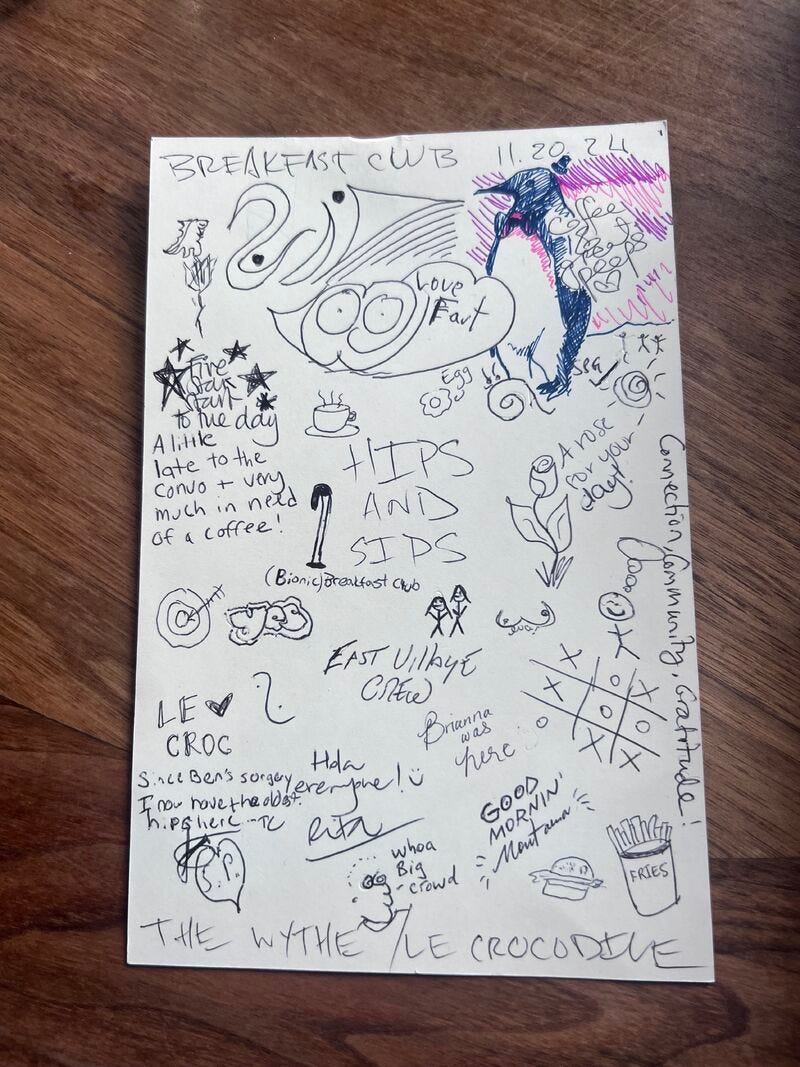 BREAKFAST CLUB 11.20.24
Love
Fart
Coffee
Five
Stars
Start
to the day
A little
late to the
convo + very
much in need
of a coffee!
Egg
HIPS
AND
SIPS
(Bionic) Breakfast Club
A rose
for your
day!
Connection, Community, Gratitude!
yes
EAST Village
CREW
LE
CROC
Brianna
was
here
X
X O X
O X O
X X
Since Ben's surgery
I now have the oldest
hips here -TC
Hola
everyone!
Rita
whoa
Big
crowd
GOOD
MORNIN'
Montana
FRIES
THE WYTHE / LE CROCODILE